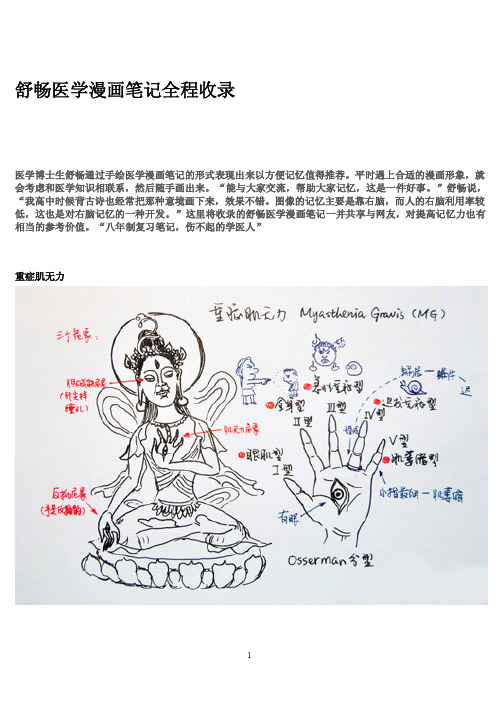 舒畅医学漫画笔记全程收录
医学博士生舒畅通过手绘医学漫画笔记的形式表现出来以方便记忆值得推荐。平时遇上合适的漫画形象，就
会考虑和医学知识相联系，然后随手画出来。“能与大家交流，帮助大家记忆，这是一件好事。”舒畅说，
“我高中时候背古诗也经常把那种意境画下来，效果不错。图像的记忆主要是靠右脑，而人的右脑利用率较
低，这也是对右脑记忆的一种开发。”这里将收录的舒畅医学漫画笔记一并共享与网友，对提高记忆力也有
相当的参考价值。“八年制复习笔记，伤不起的学医人”
重症肌无力
重症肌无力 Myasthenia Gravis (MG)
三个危象：
胆碱能危象
(针尖样
瞳孔)
肌无力危象
反拗危象
(手是反拗的)
全身型
II型
眼肌型
I型
III型
IV型
迟发重症型
迟
V型
肌萎缩型
小指最细—肌萎缩
有眼
Osserman分型
1